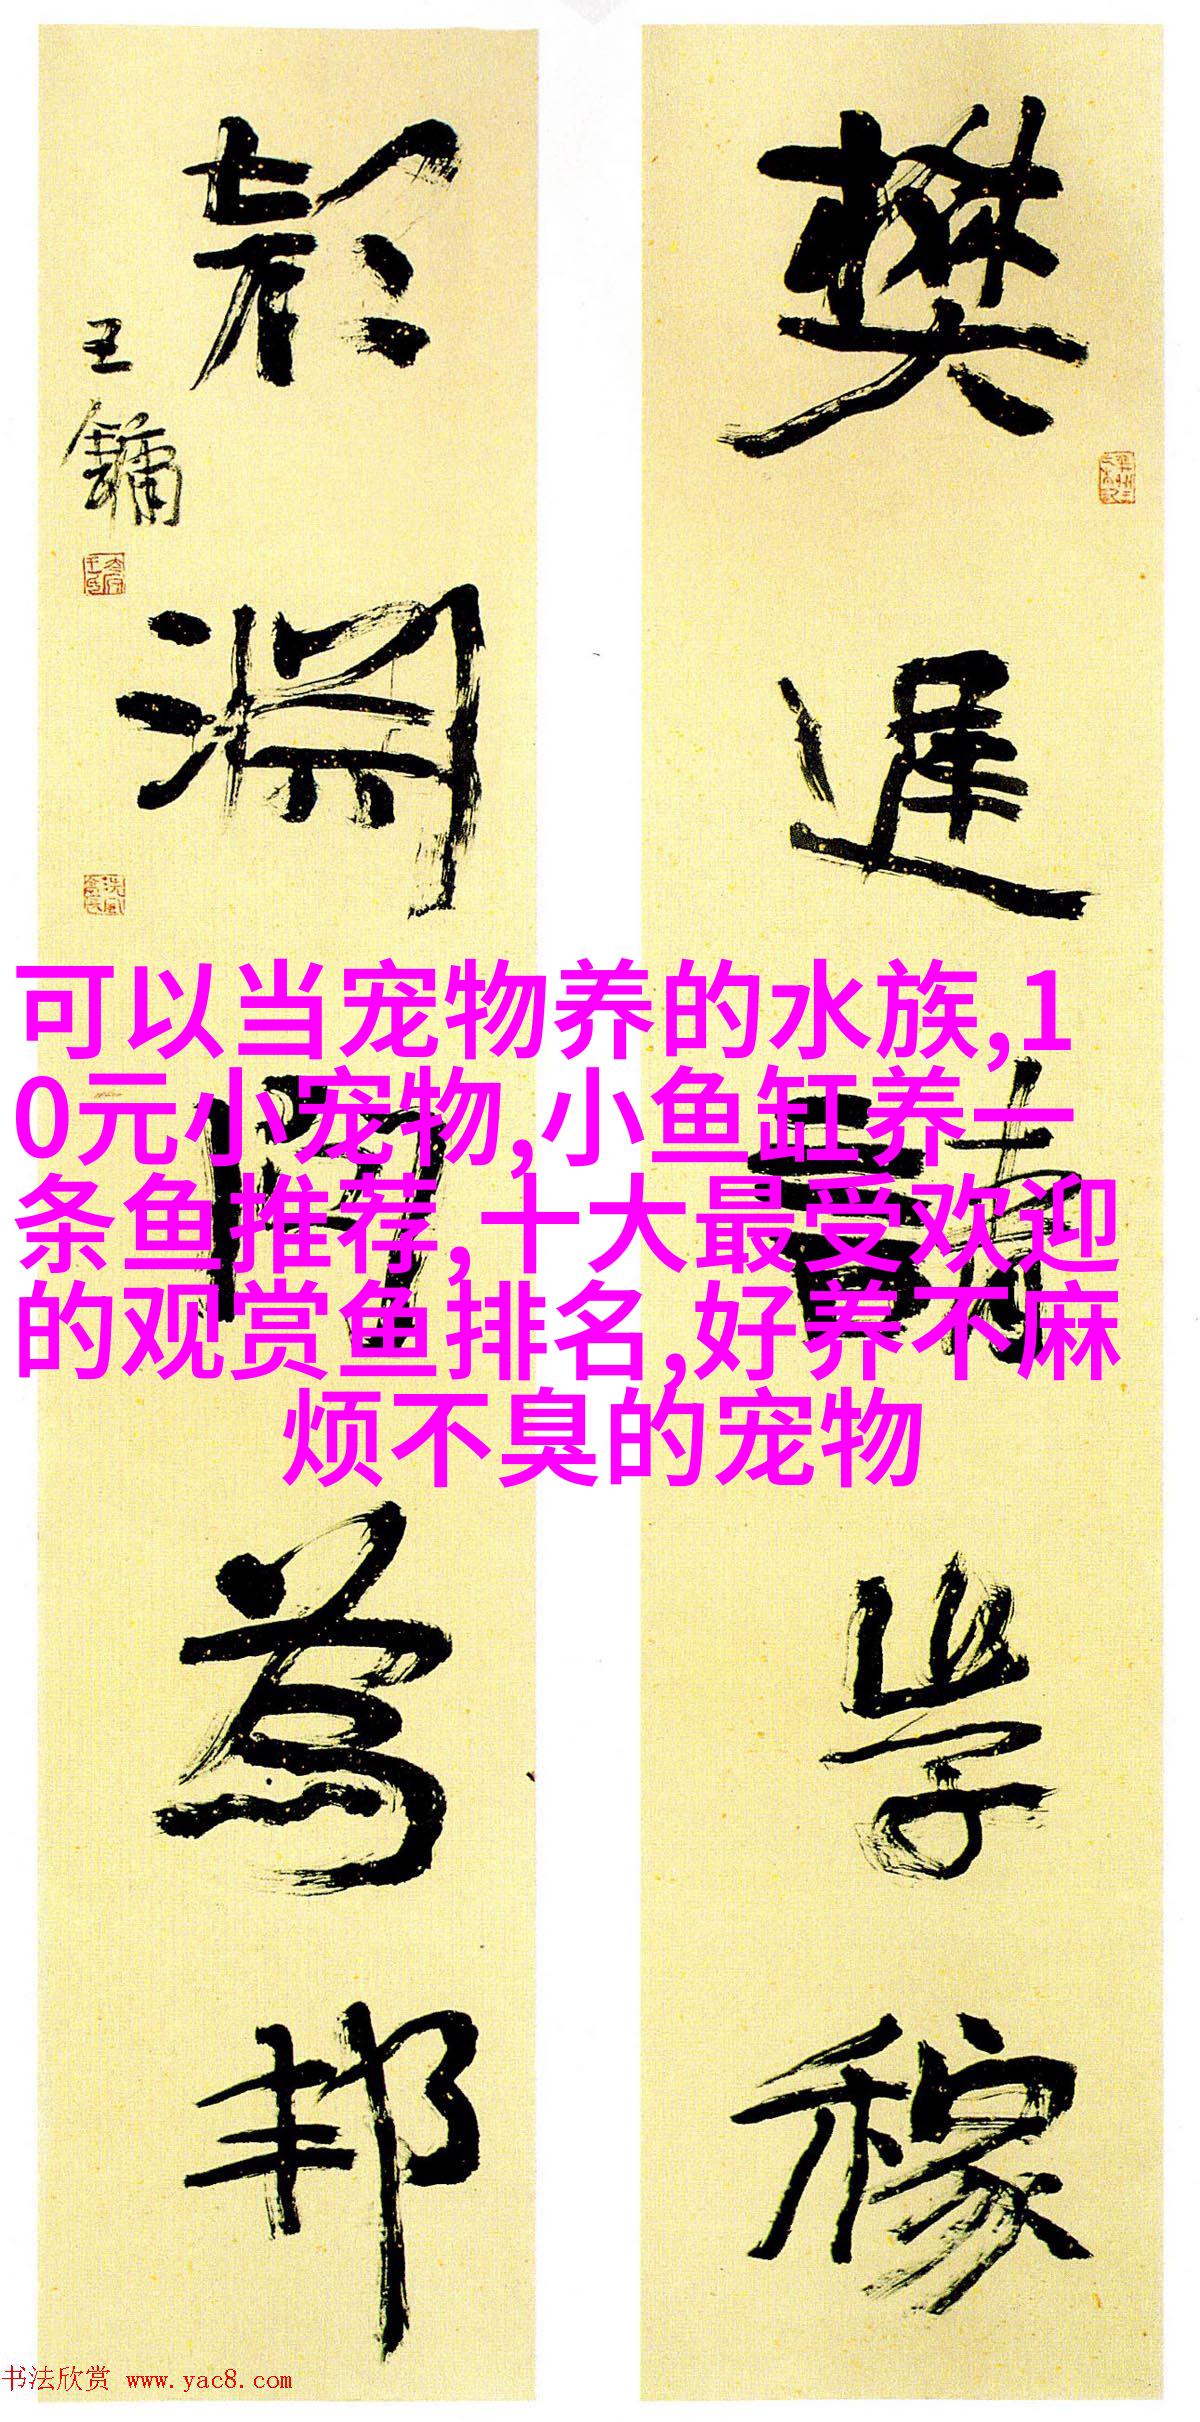 樊遲請学稼
顔淵問為邦
王鏞
可以当宠物养的水族,1
0元小宠物,小鱼缸养一
条鱼推荐,十大最受欢迎
的观赏鱼排名,好养不麻
烦不臭的宠物
书法欣赏 www.yac8.com